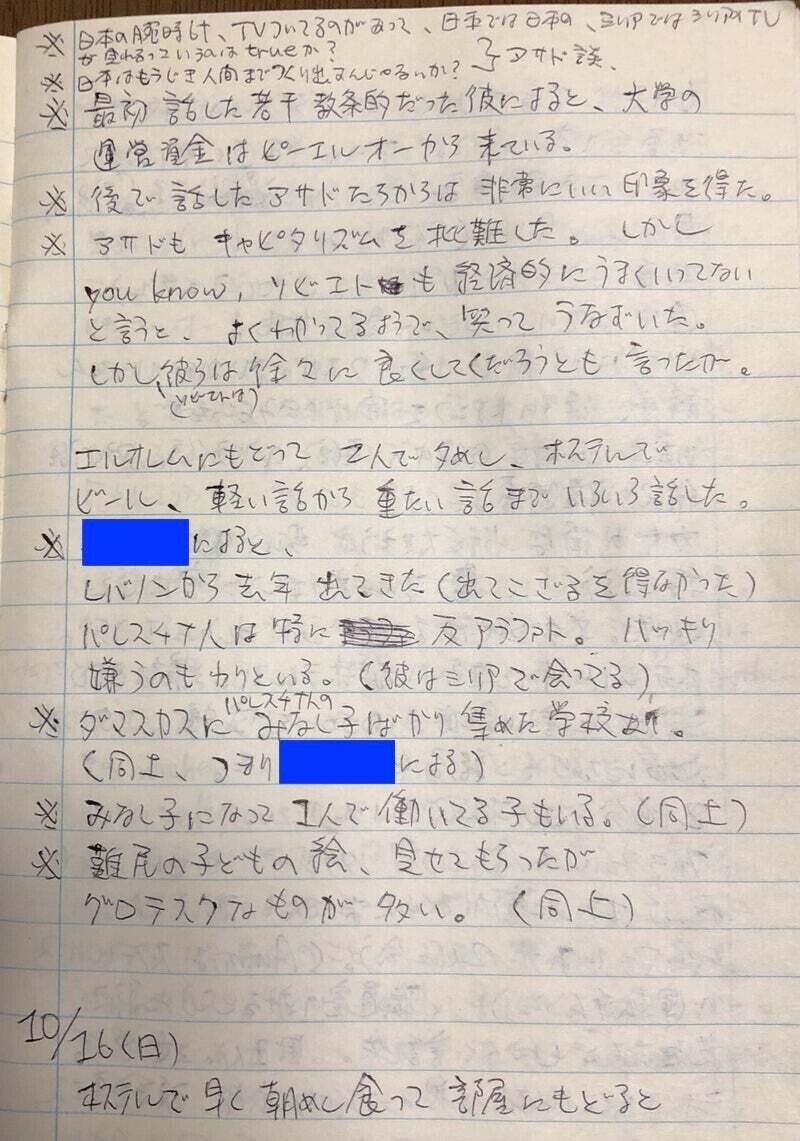 ※ 日本の腕時計、TVついてるのがあって、日本では日本の、シリアではシリアのTV
が見れるっていうのはtrueか?
※ 日本はもうじき人間までつくり出すんじゃないか? } アサド談、
※ 最初話した若干教条的だった彼によると、大学の
運営資金はピーエルオーから来ている。
※ 後で話したアサドたちからは非常にいい印象を得た。
※ アサドもキャピタリズムを批難した。しかし
you know, ソビエトも経済的にうまくいってない
と言うと、よくわかってるようで、笑ってうなずいた。
しかし彼らは徐々に良くしてくだろうとも言ったが。
(ソビエトは)
エルオレムにもどって2人で夕めし、ホステルで
ビール、軽い話から重たい話までいろいろ話した。
※ によると、
レバノンから去年出てきた(出てこざるを得なかった)
パレスチナ人は特に反アラファト。ハッキリ
嫌うのもわりといる。(彼はシリアで会ってる)
※ ダマスカスにパレスチナ人のみなし子ばかり集めた学校あり。
(同上、つまり による)
※ みなし子になって1人で働いてる子もいる。(同上)
※ 難民の子どもの絵、見せてもらったが
グロテスクなものが多い。(同上)
10/16(日)
ホステルで早く朝めし食って部屋にもどると